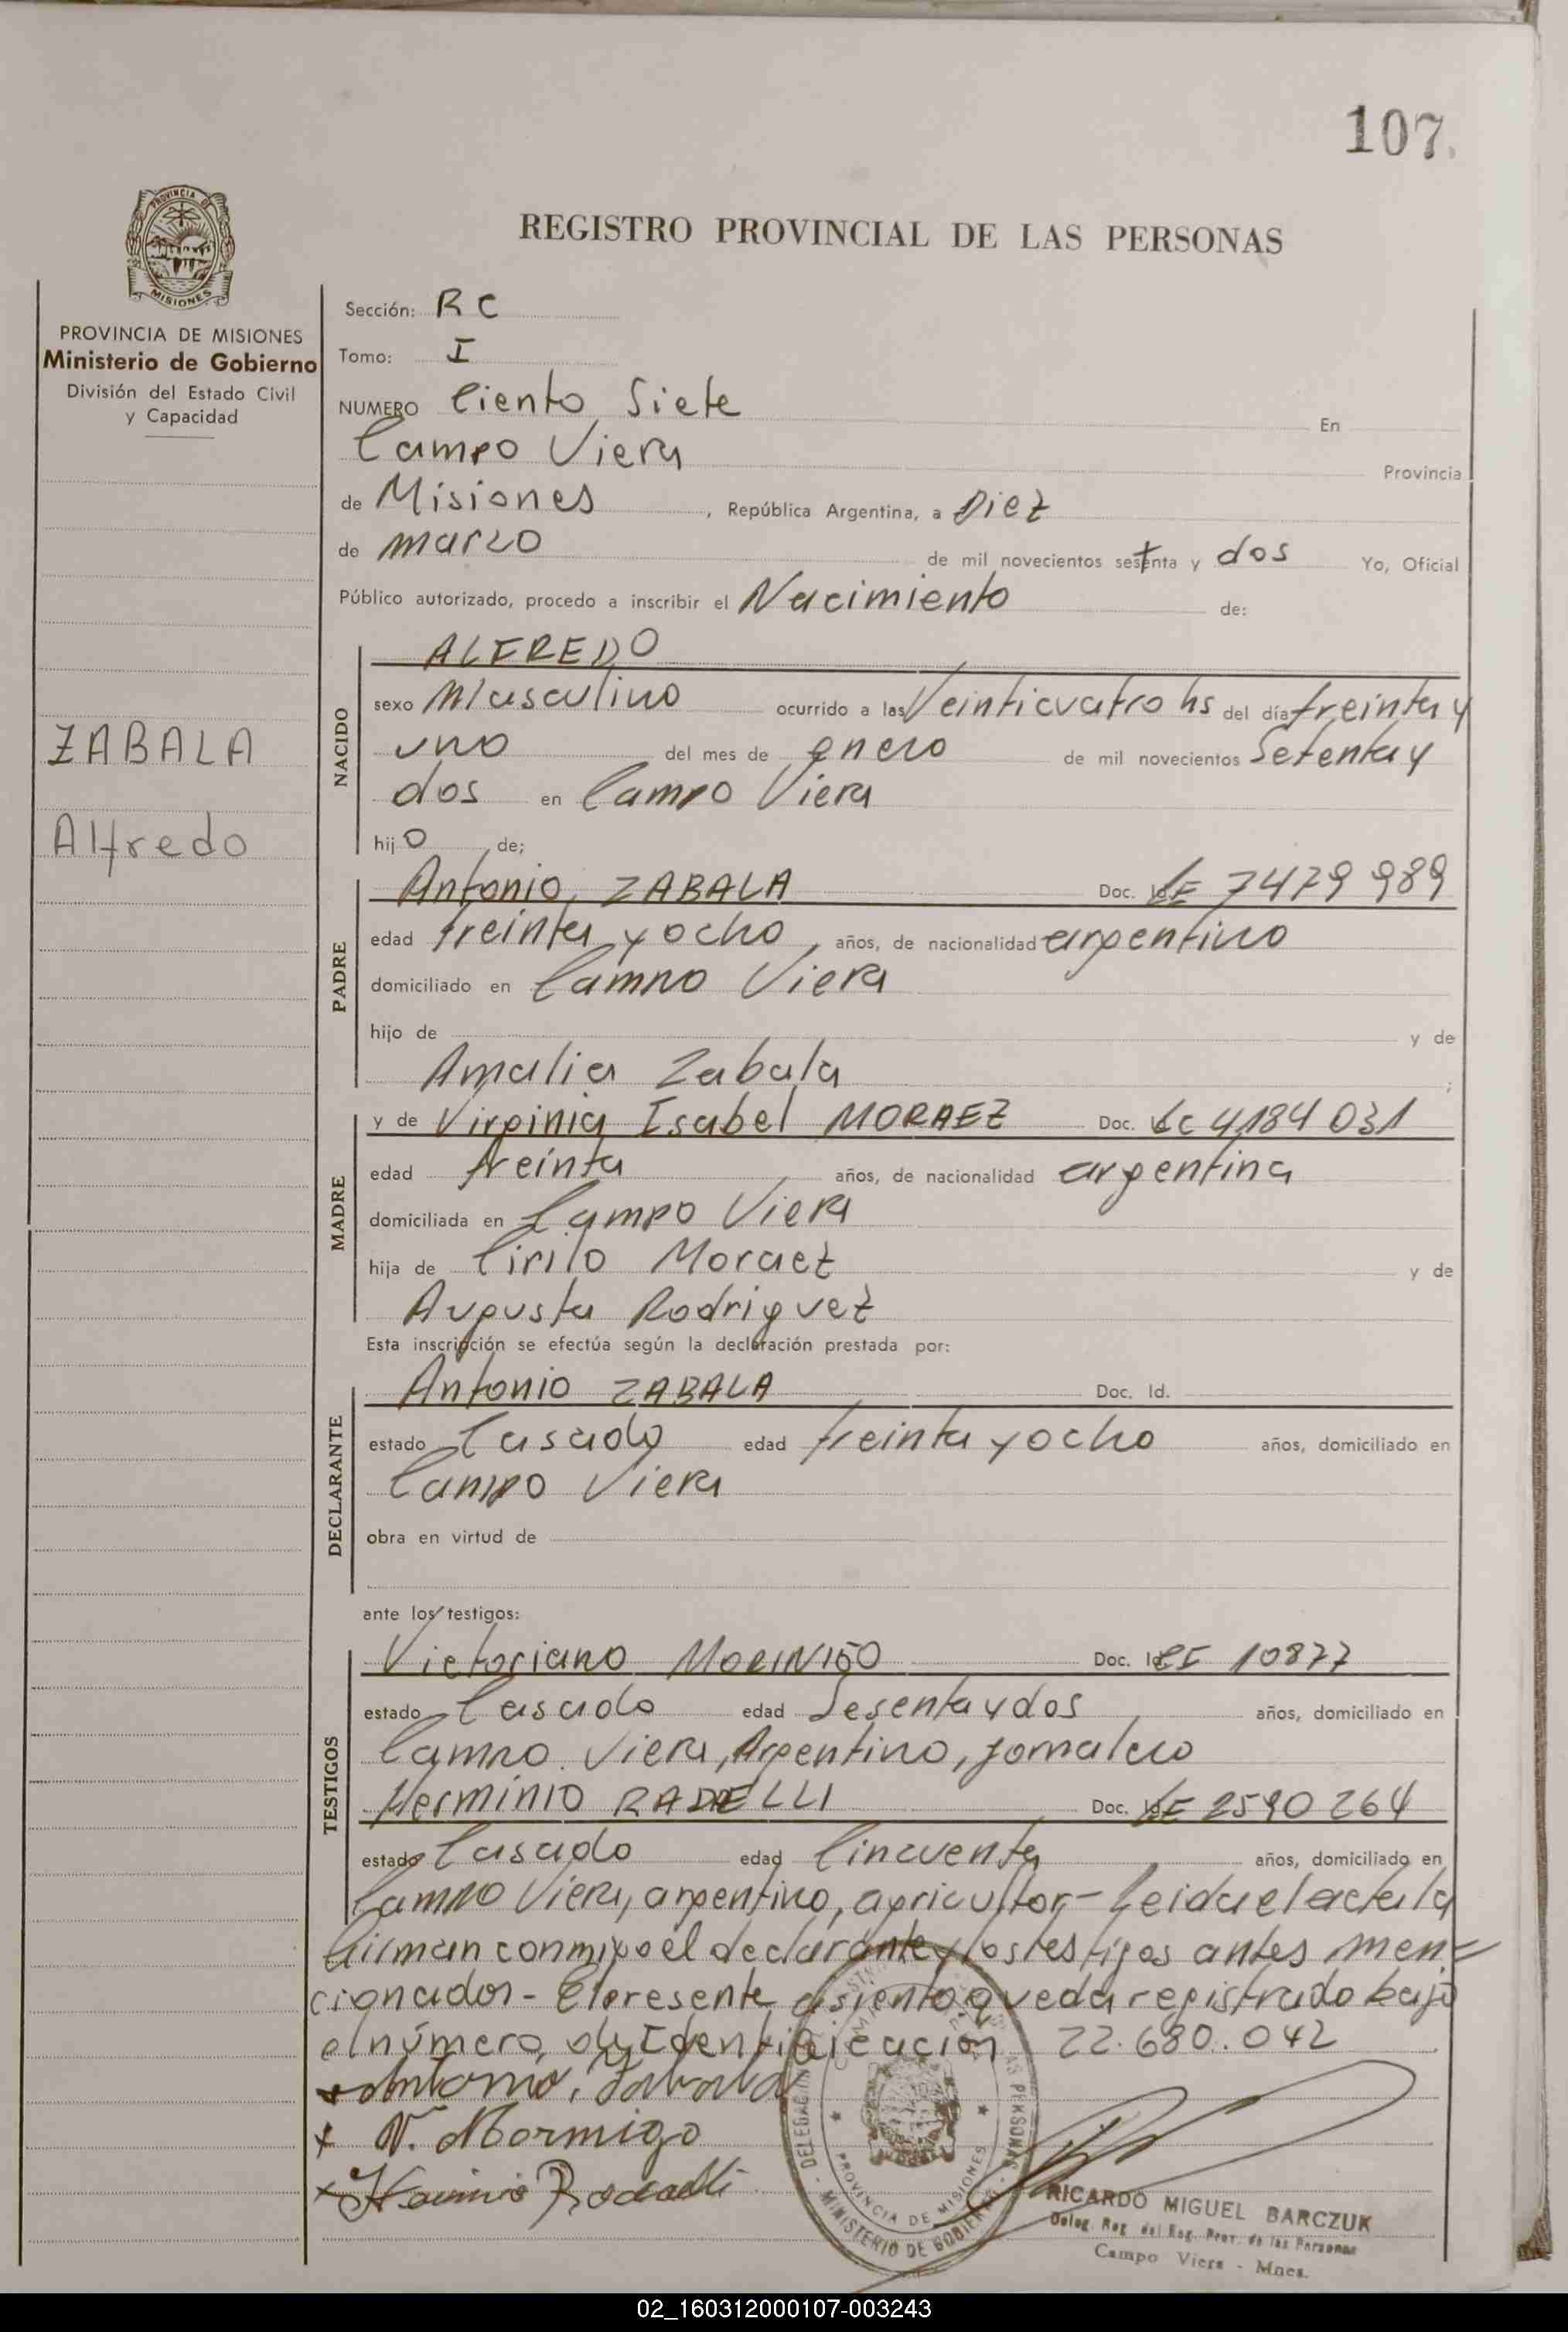 107.
PROVINCIA DE
MISIONES
REGISTRO PROVINCIAL DE LAS PERSONAS
PROVINCIA DE MISIONES
Ministerio de Gobierno
División del Estado Civil
y Capacidad
ZABALA
Alfredo
Sección: RC
Tomo: I
NUMERO Ciento Siete En
Campo Viera Provincia
de Misiones, República Argentina, a Diez
de marzo de mil novecientos setenta y dos Yo, Oficial
Público autorizado, procedo a inscribir el Nacimiento de:
NACIDO
ALFREDO
sexo Masculino ocurrido a las Veinticuatro hs del día treinta y
uno del mes de enero de mil novecientos Setenta y
dos en Campo Viera
hijo de;
PADRE
Antonio, ZABALA Doc. LE 7479989
edad treinta y ocho, años, de nacionalidad argentino
domiciliado en Campo Viera
hijo de y de
Amalia Zabala ;
MADRE
y de Virginia Isabel MORAEZ Doc. LC 4184031
edad treinta años, de nacionalidad argentina
domiciliada en Campo Viera
hija de Cirilo Moraez y de
Augusta Rodriguez
Esta inscripción se efectúa según la declaración prestada por:
DECLARANTE
Antonio ZABALA Doc. Id.
estado Casado edad treinta y ocho años, domiciliado en
Campo Viera
obra en virtud de
ante los testigos:
TESTIGOS
Victoriano Doc. Id. 10877
estado Casado edad Sesenta y dos años, domiciliado en
Campo Viera, Argentino, jornalero
Herminio Doc. LE 2590264
estado Casado edad Cincuenta años, domiciliado en
Campo Viera, argentino, agricultor- Leida el acta la
firman conmigo el declarante y los testigos antes men=
cionados- El presente asiento queda registrado bajo
el número de Identificación 22.680.042
Antonio, Zabala
V. Mormigo
RICARDO MIGUEL BARCZUK
Deleg. Reg. del Reg. Prov. de las Personas
Campo Viera - Mnes.
PROVINCIA DE MISIONES
MINISTERIO DE GOBIERNO
02_160312000107-003243